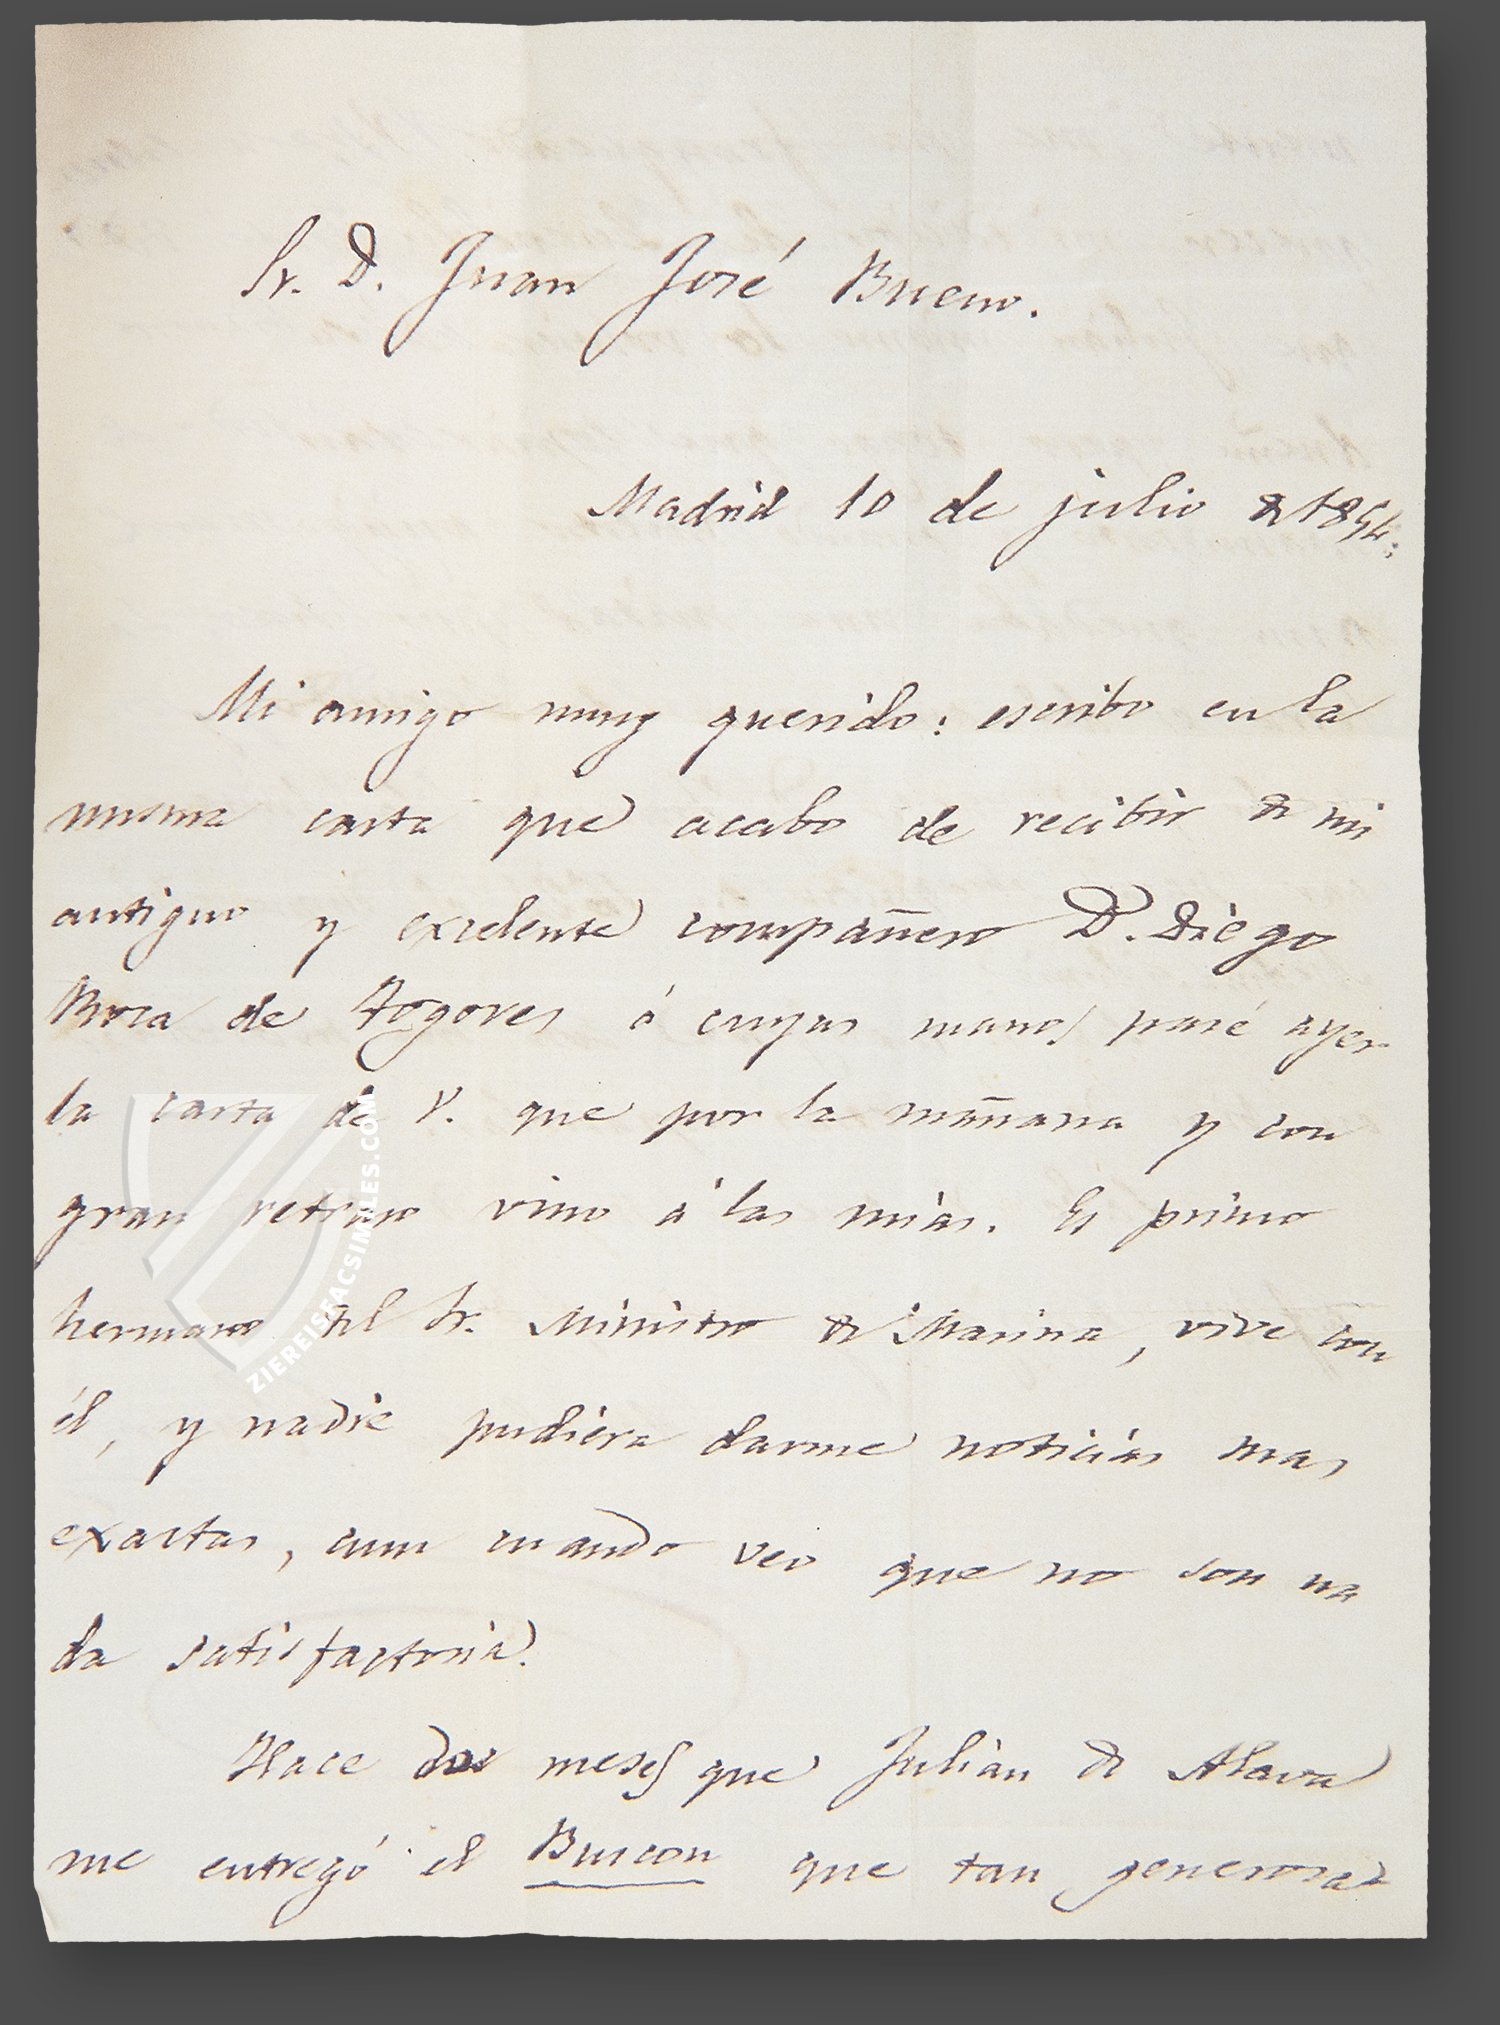 Sr. D. Juan José Bueno.
Madrid 10 de julio de 1854.
Mi amigo muy querido: escribo en la
misma carta que acabo de recibir de mi
antiguo y excelente compañero D. Diego
Roca de Togores á cuyas manos pasé ayer
la carta de V. que por la mañana y con
gran retraso vino á las mias. Es primo
hermano del Sr. Ministro de Marina, vive con
él, y nadie pudiera darme noticias mas
exactas, aun cuando veo que no son na
da satisfactoria.
Hace dos meses que Julian de Alava
me entregó el Buscon que tan generosa
ZIEREISFACSIMILES.COM